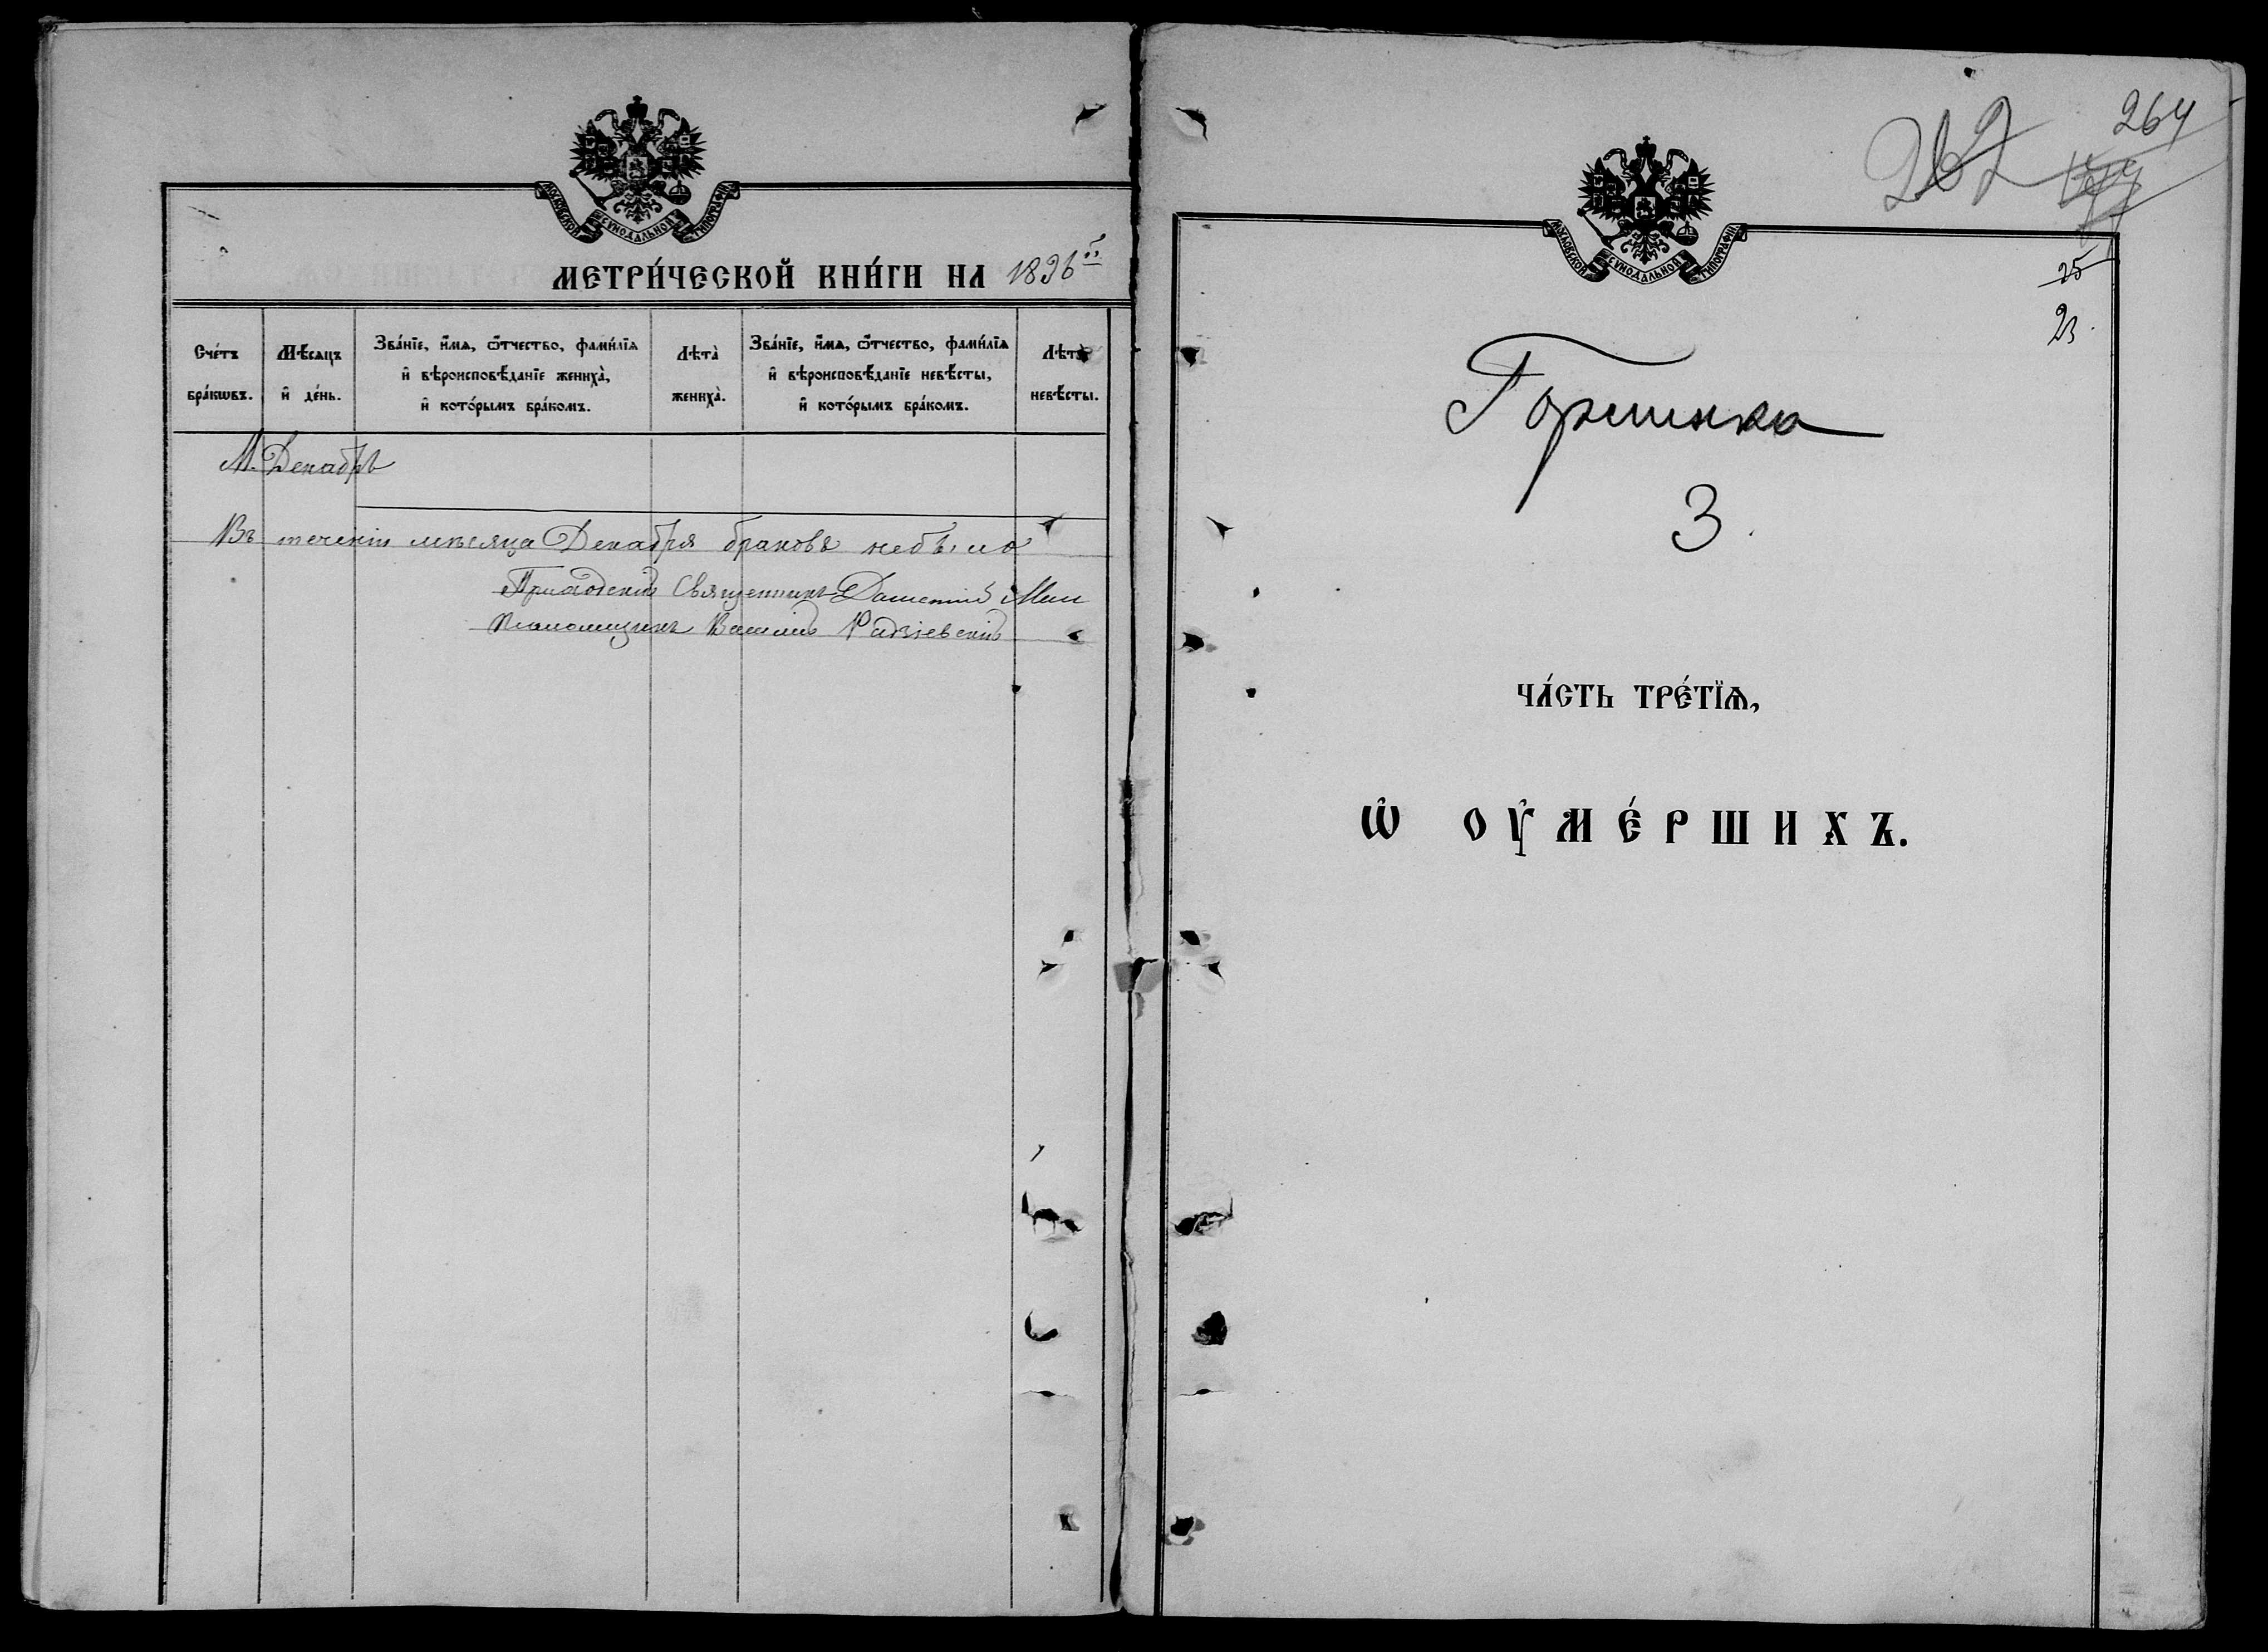 МОСКОВСКОЙ СѴНОДАЛЬНОЙ ТИПОГРАФІИ
МЕТРИ́ЧЕСКОЙ КНИ́ГИ НА 1896
Сче́тъ бра́кѡвъ.
Мѣ́сѧцъ и҆ де́нь.
Зва́нїе, и҆́мѧ, ѻ҆́тчество, фами́лїѧ
и҆ вѣроисповѣ́данїе женихà,
и҆ кото́рымъ бра́комъ.
Лѣтà женихà.
Зва́нїе, и҆́мѧ, ѻ҆́тчество, фами́лїѧ
и҆ вѣроисповѣ́данїе невѣ́сты,
и҆ кото́рымъ бра́комъ.
Лѣтà невѣ́сты.
М. Декабрь
Въ теченіи мѣсяца Декабря браковъ небыло
Приходскій Священникъ
Псаломщикъ Василій Радзіевскій
262
264
МОСКОВСКОЙ СѴНОДАЛЬНОЙ ТИПОГРАФІИ
25
23.
3.
ЧА́СТЬ ТРЕ́ТЇѦ,
Ѡ҆ ОУ҆МЕ́РШИХЪ.